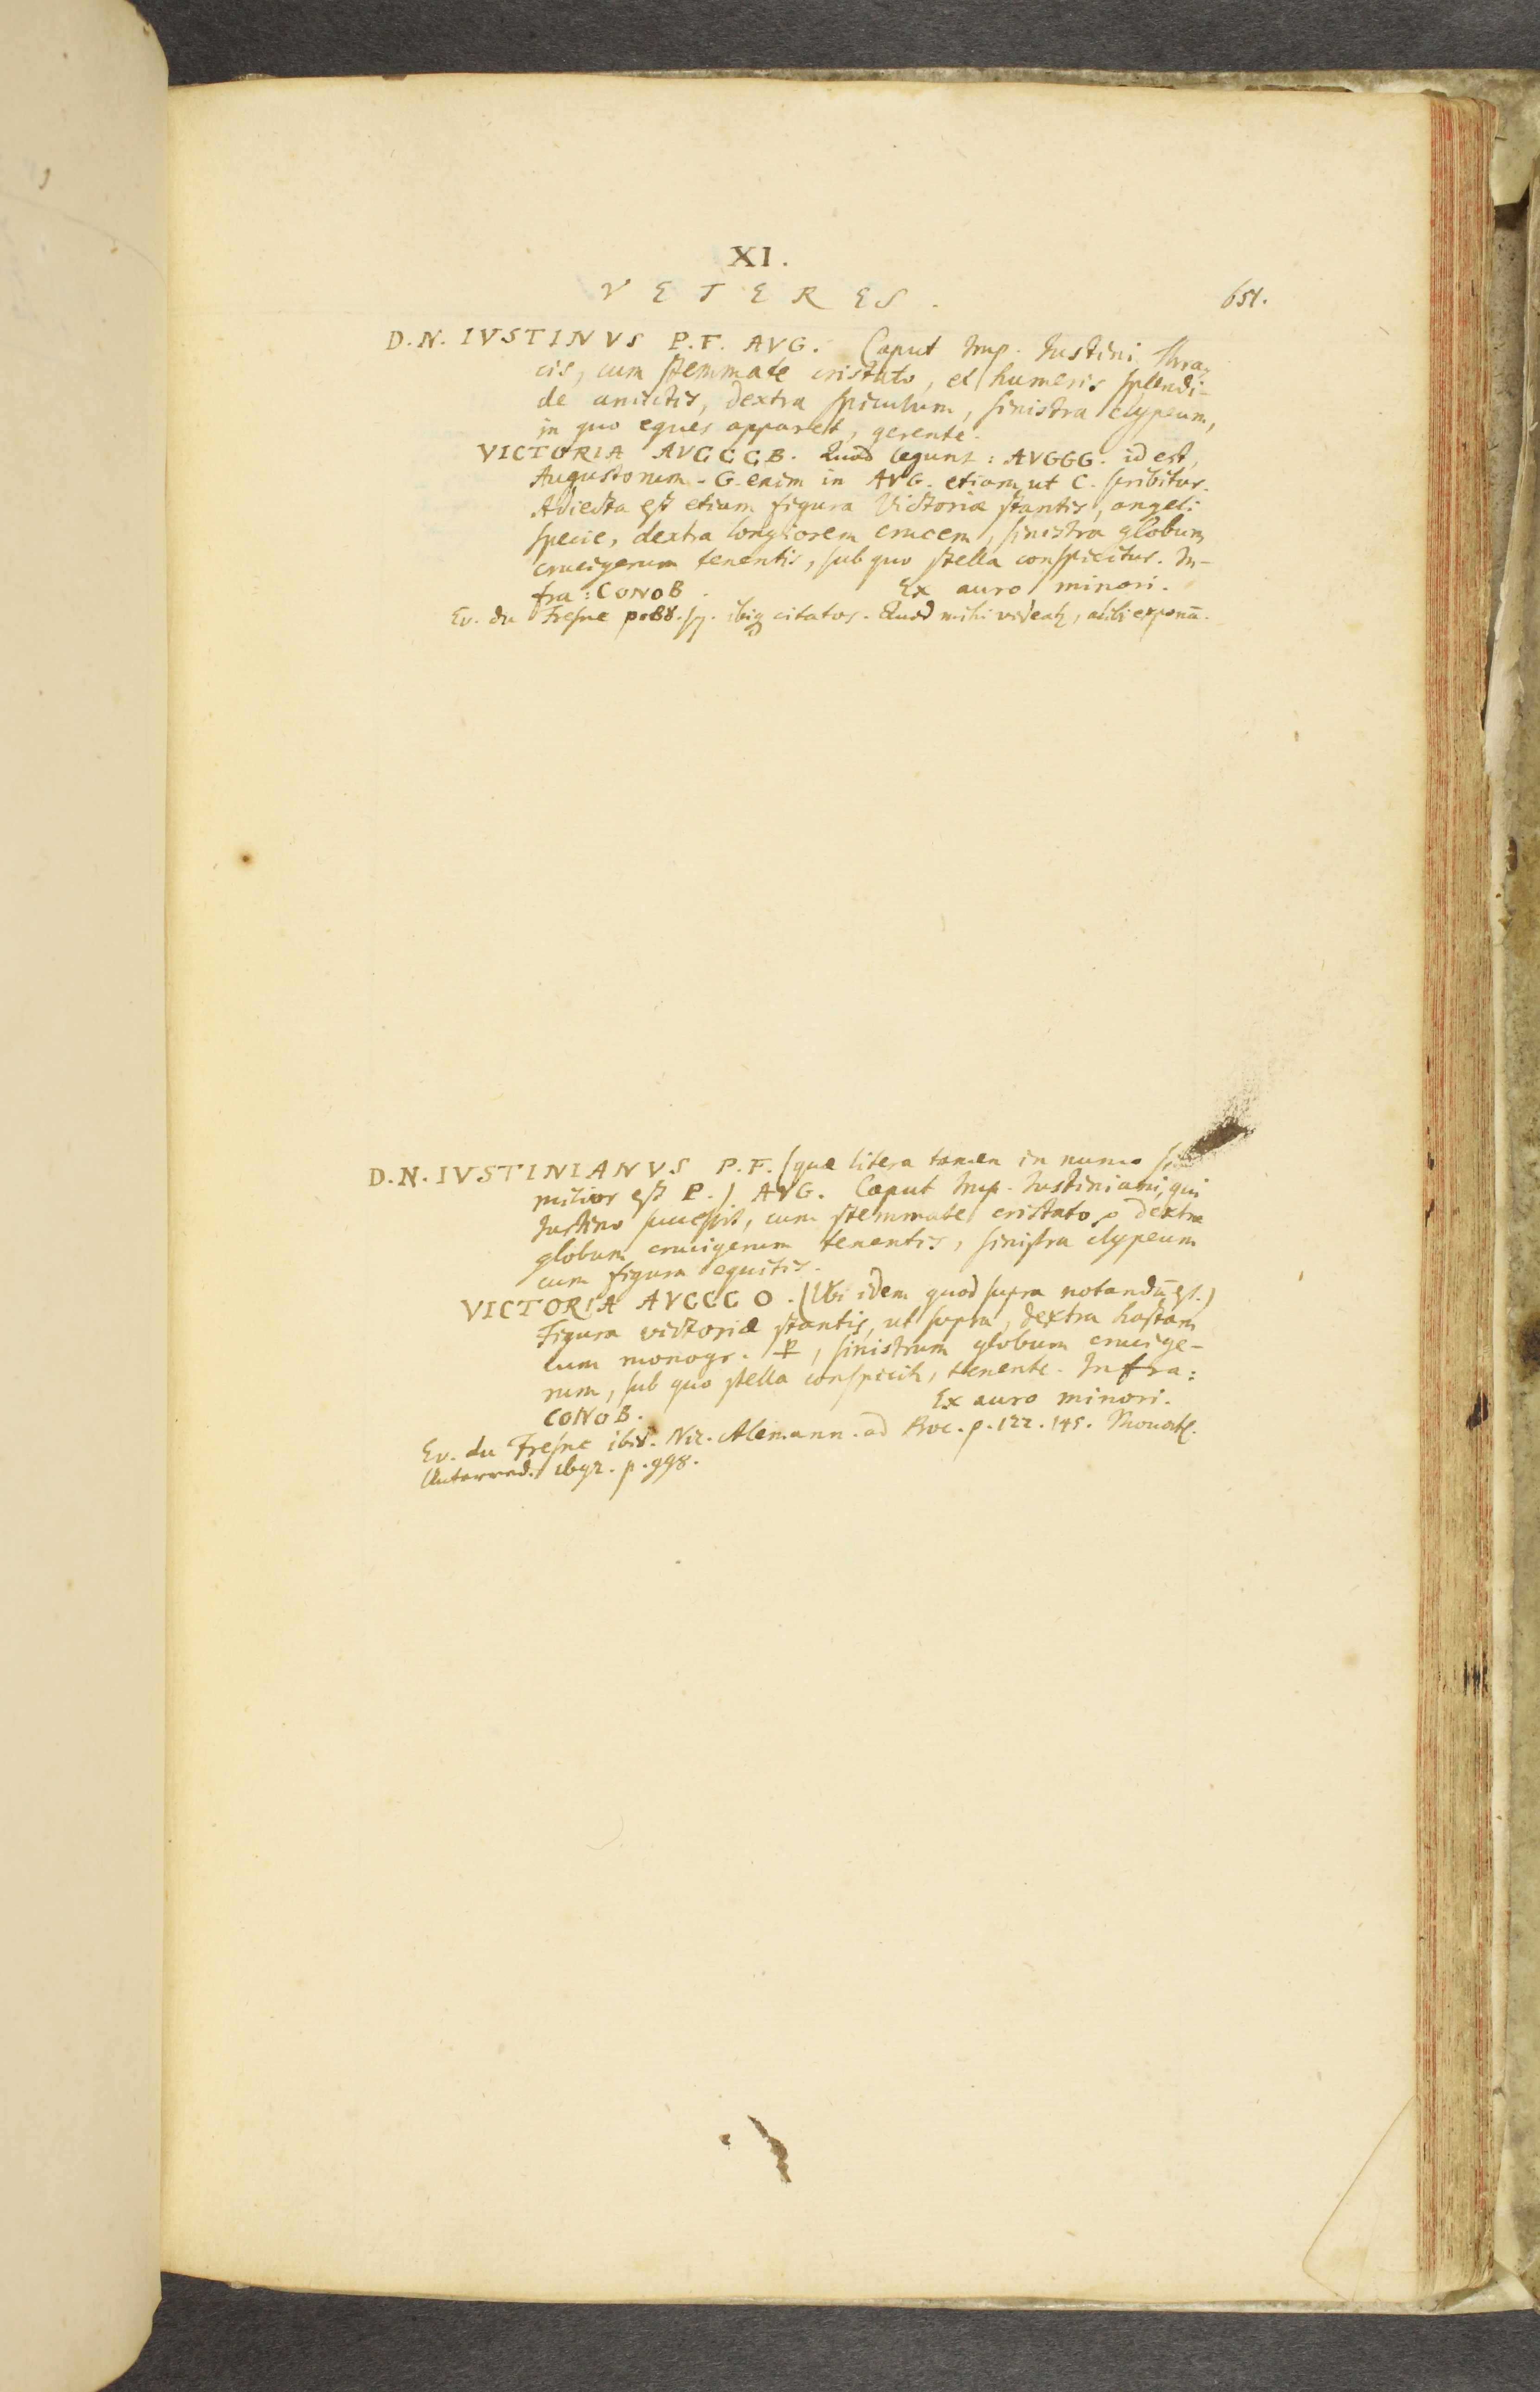 XI.
VETERES.
651.
D.N. IVSTINVS P.F. AVG. Caput Imp. Iustini Thra-
cis, cum stemmate cristato, et humeris splendi-
de amictis, dextra spiculum, sinistra clypeum,
in quo eques apparet, gerente.
VICTORIA AVGGGB. Quod legunt: AVGGG. id est,
Augustorum. G. enim in AVG. etiam ut C. scribitur.
Adiecta est etiam figura Victoriæ stantis, angeli
specie, dextra longiorem crucem, sinistra globum
crucigerum tenentis, sub quo stella conspicitur. In-
fra: CONOB. Ex auro minori.
Ev. du Fresne p. 88. sq. ibiq citatos. Quod mihi videatr, alibi exponā.
D.N. IVSTINIANVS P.F. (quæ litera tamen in numo si-
milior est P.) AVG. Caput Imp. Iustiniani, qui
Iustino successit, cum stemmate cristato, dextra
globum crucigerum tenentis, sinistra clypeum
cum figura equitis.
VICTORIA AVCCC O. (Ubi idem quod supra notandū est.)
Figura victoriæ stantis, ut supra, dextra hastam
cum monogr. ⳨, sinistrum globum crucige-
rum, sub quo stella conspicitr, tenente. Infra:
CONOB. Ex auro minori.
Ev. du Fresne ibid. Nic. Alemann. ad Proc. p. 122. 145. Monatl.
Unterred. p. 998.